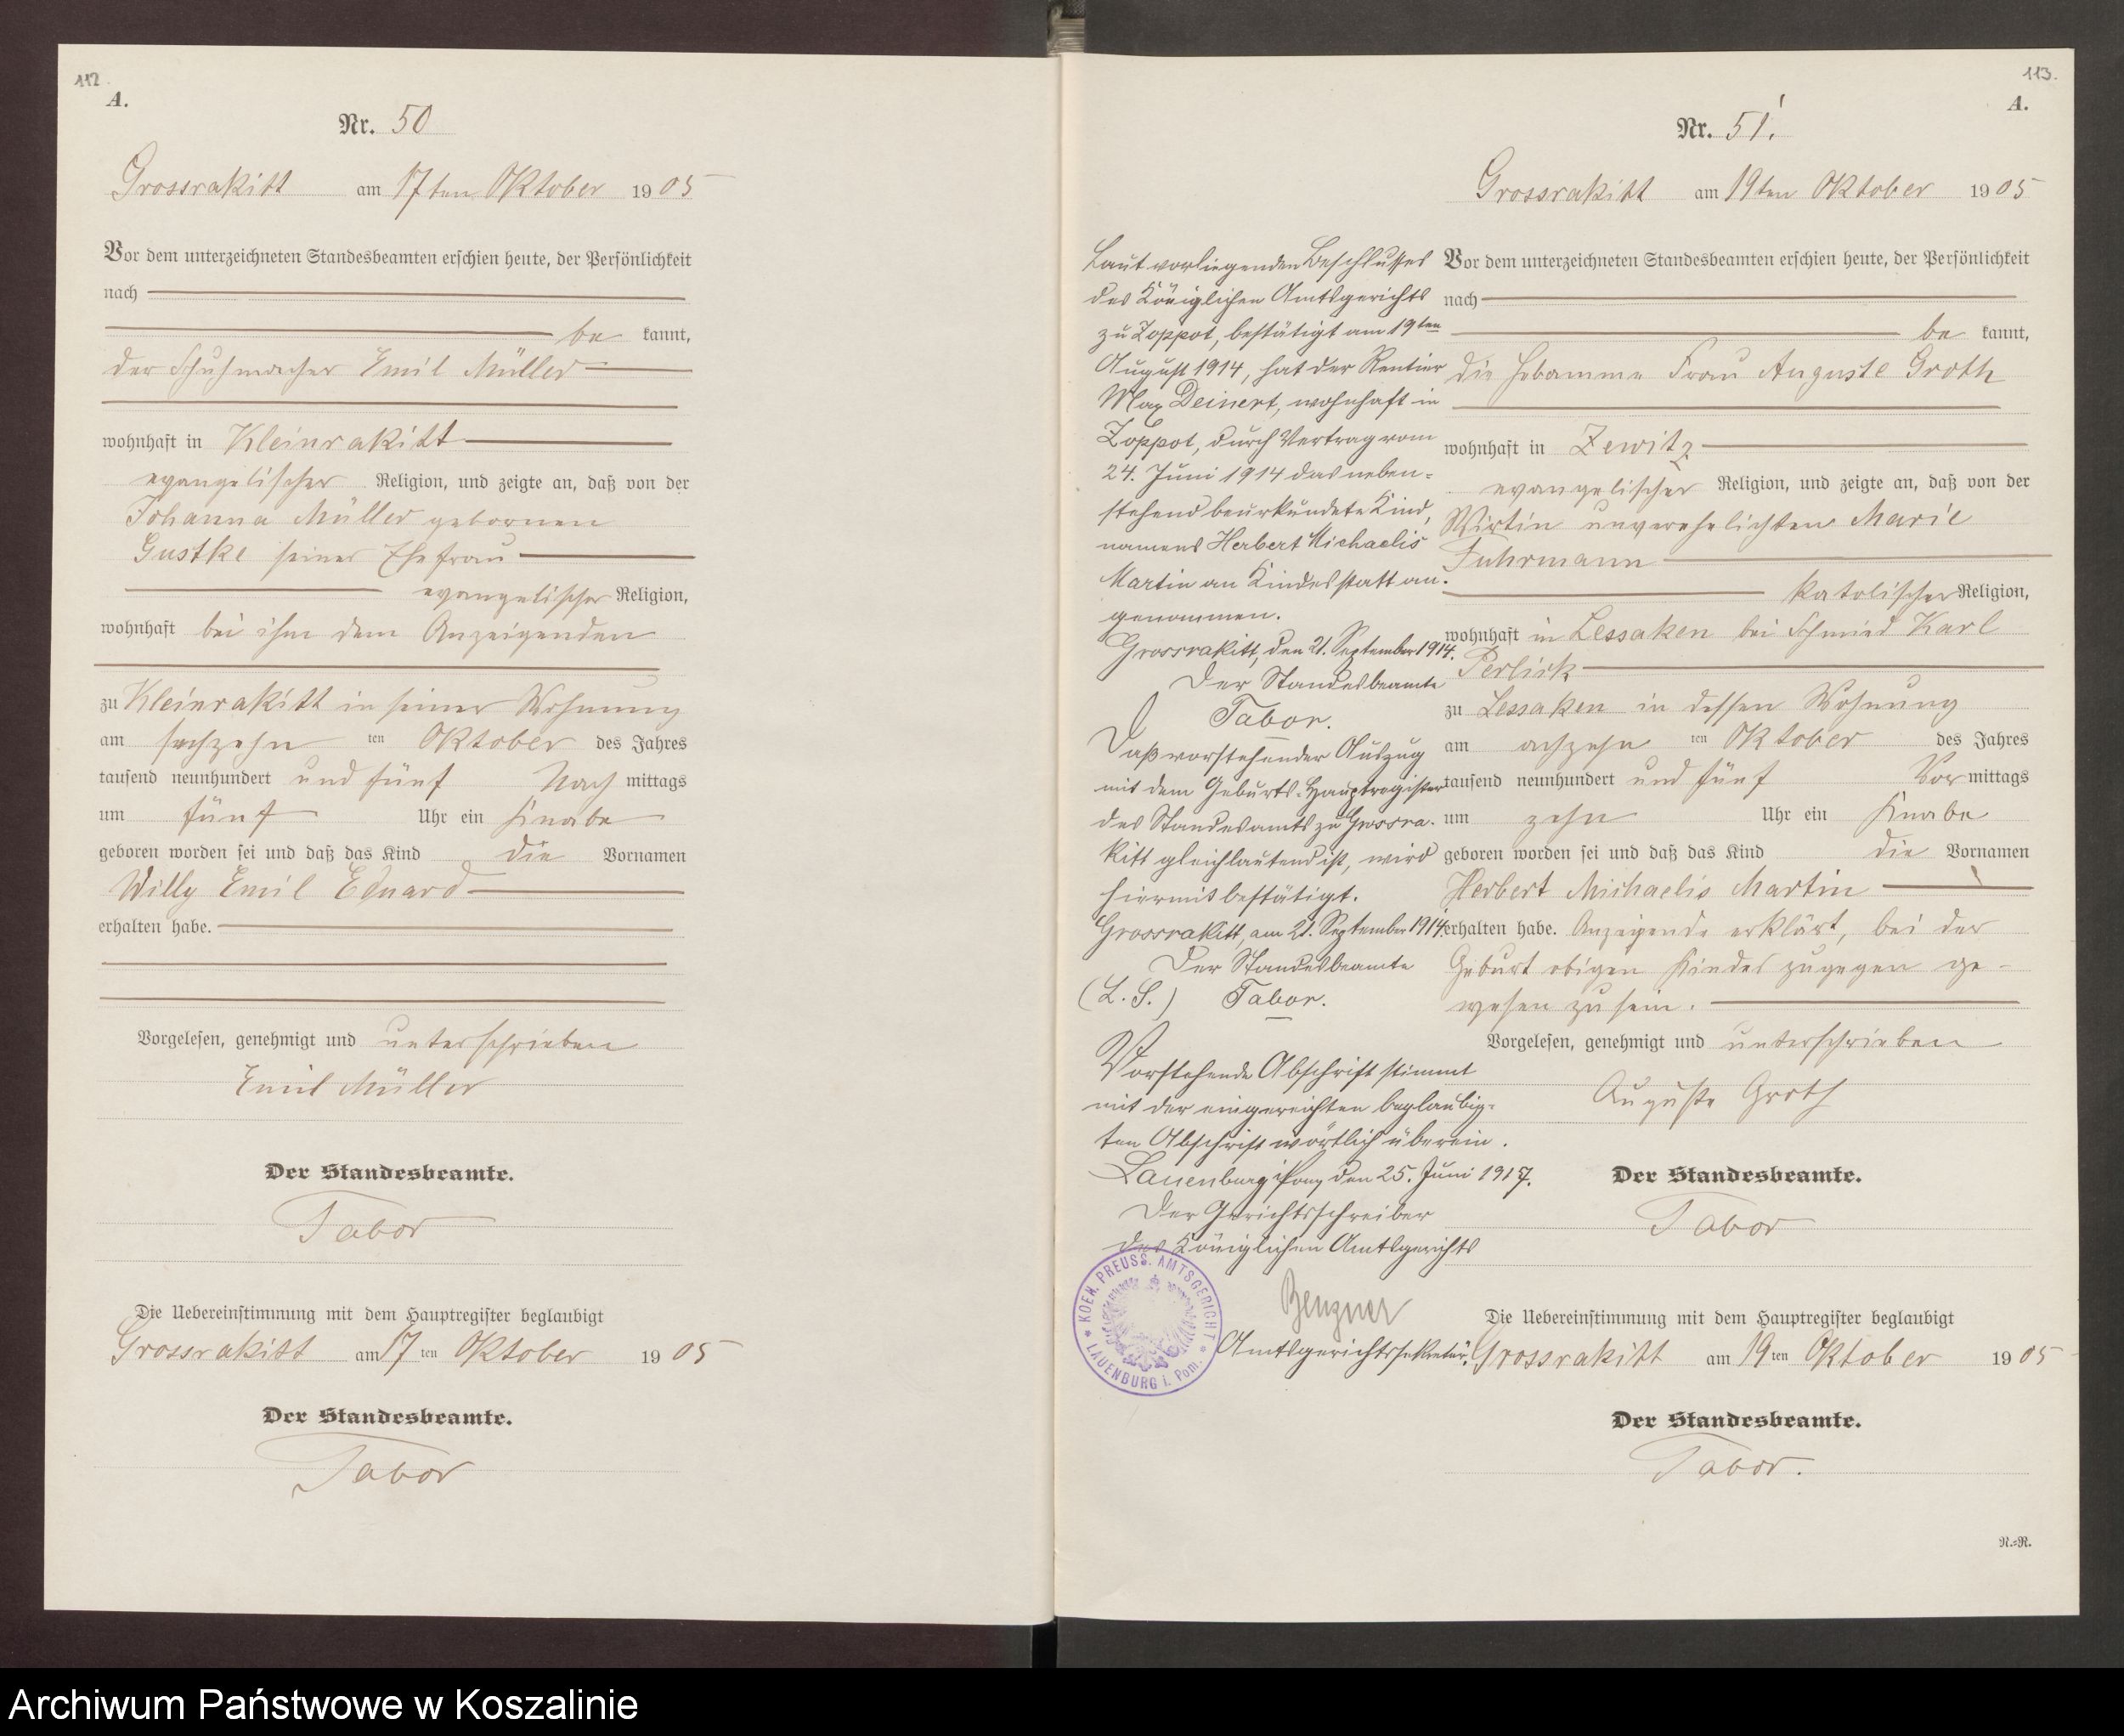 112
A.
Nr. 50
Grossrakitt am 17ten Oktober 1905
Vor dem unterzeichneten Standesbeamten erschien heute, der Persönlichkeit
nach
be kannt,
der Schuhmacher Emil Müller
wohnhaft in Kleinrakitt
evangelischer Religion, und zeigte an, daß von der
Johanna Müller gebornen
Gustke seiner Ehefrau
evangelischer Religion,
wohnhaft bei ihm dem Anzeigenden
zu Kleinrakitt in seiner Wohnung
am sechzehn ten Oktober des Jahres
tausend neunhundert und fünf Nach mittags
um fünf Uhr ein Knabe
geboren worden sei und daß das Kind die Vornamen
Willy Emil Eduard
erhalten habe.
Vorgelesen, genehmigt und unterschrieben
Emil Müller
Der Standesbeamte.
Tabor
Die Uebereinstimmung mit dem Hauptregister beglaubigt
Grossrakitt am 17 ten Oktober 1905
Der Standesbeamte.
Tabor
113.
A.
Nr. 51.
Grossrakitt am 19ten Oktober 1905
Laut vorliegenden Beschlusses
des Königlichen Amtsgerichts
zu Zoppot, bestätigt am 19ten
August 1914, hat der Rentier
Max Deinert, wohnhaft in
Zoppot, durch Vertrag vom
24. Juni 1914 das neben-
stehend beurkundete Kind,
namens Herbert Michaelis
Martin an Kindesstatt an-
genommen.
Grossrakitt, den 21. September 1914.
Der Standesbeamte
Tabor.
Daß vorstehender Auszug
mit dem Geburts-Hauptregister
des Standesamts zu Grossra-
kitt gleichlautend ist, wird
hiermit bestätigt.
Grossrakitt, am 21. September 1914.
Der Standesbeamte
(L. S.) Tabor.
Vorstehende Abschrift stimmt
mit der eingereichten beglaubig-
ten Abschrift wörtlich überein.
Lauenburg i Pom, den 25. Juni 1917.
Der Gerichtsschreiber
des Königlichen Amtsgerichts
Amtsgerichtssekretär.
KOEN. PREUSS. AMTSGERICHT * LAUENBURG i. Pom. *
Vor dem unterzeichneten Standesbeamten erschien heute, der Persönlichkeit
nach
be kannt,
die Hebamme Frau Auguste Groth
wohnhaft in Zewitz
evangelischer Religion, und zeigte an, daß von der
Wirtin unverehelichten Marie
Fuhrmann
katolischer Religion,
wohnhaft in Lessaken bei Schmied Karl
Perlick
zu Lessaken in dessen Wohnung
am achzehn ten Oktober des Jahres
tausend neunhundert und fünf Vor mittags
um zehn Uhr ein Knabe
geboren worden sei und daß das Kind die Vornamen
Herbert Michaelis Martin
erhalten habe. Anzeigende erklärt, bei der
Geburt obigen Kindes zugegen ge-
wesen zu sein.
Vorgelesen, genehmigt und unterschrieben
Auguste Groth
Der Standesbeamte.
Tabor
Die Uebereinstimmung mit dem Hauptregister beglaubigt
Grossrakitt am 19 ten Oktober 1905
Der Standesbeamte.
Tabor.
N.=R.
Archiwum Państwowe w Koszalinie